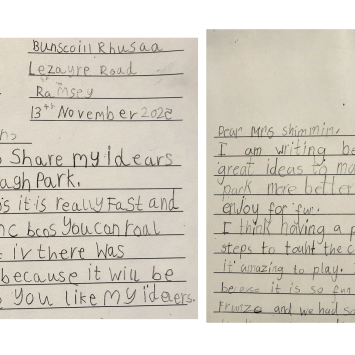 Bunscoill Rhusaa
Lezayre Road
Ramsey
13th November 202
Share my idears
agh Park.
s it is really Fast and
nc bcos You can roal
e iv there was
because it will be
You like My ideers.
Dear Mrs Shimmin,
I am writing be
great ideas to ma
park more better
enjoy for fur.
I think having a p
steps to tauht the c
it amazing to play.
becaus it is so fun
Frunzo and we had so